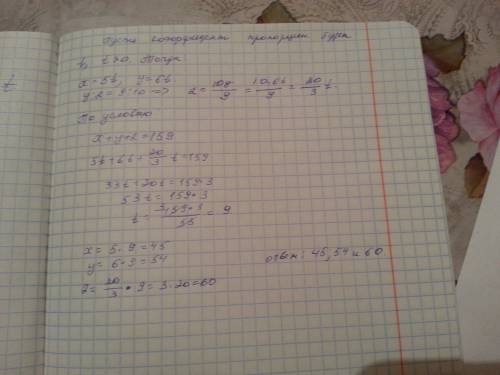 Пусть коэффициент пропорции будет
t > 0. Тогда
x = 5t, y = 6t
y:z = 9:10 => z = 10y/9 = 10·6t/9 = 20/3 t.
По условию
x + y + z = 159
5t + 6t + 20/3 t = 159
33t + 20t = 159·3
53t = 159·3
t = 159·3/53 = 9
x = 5·9 = 45
y = 6·9 = 54
z = 20/3 · 9 = 3·20 = 60
ответ: 45, 54 и 60